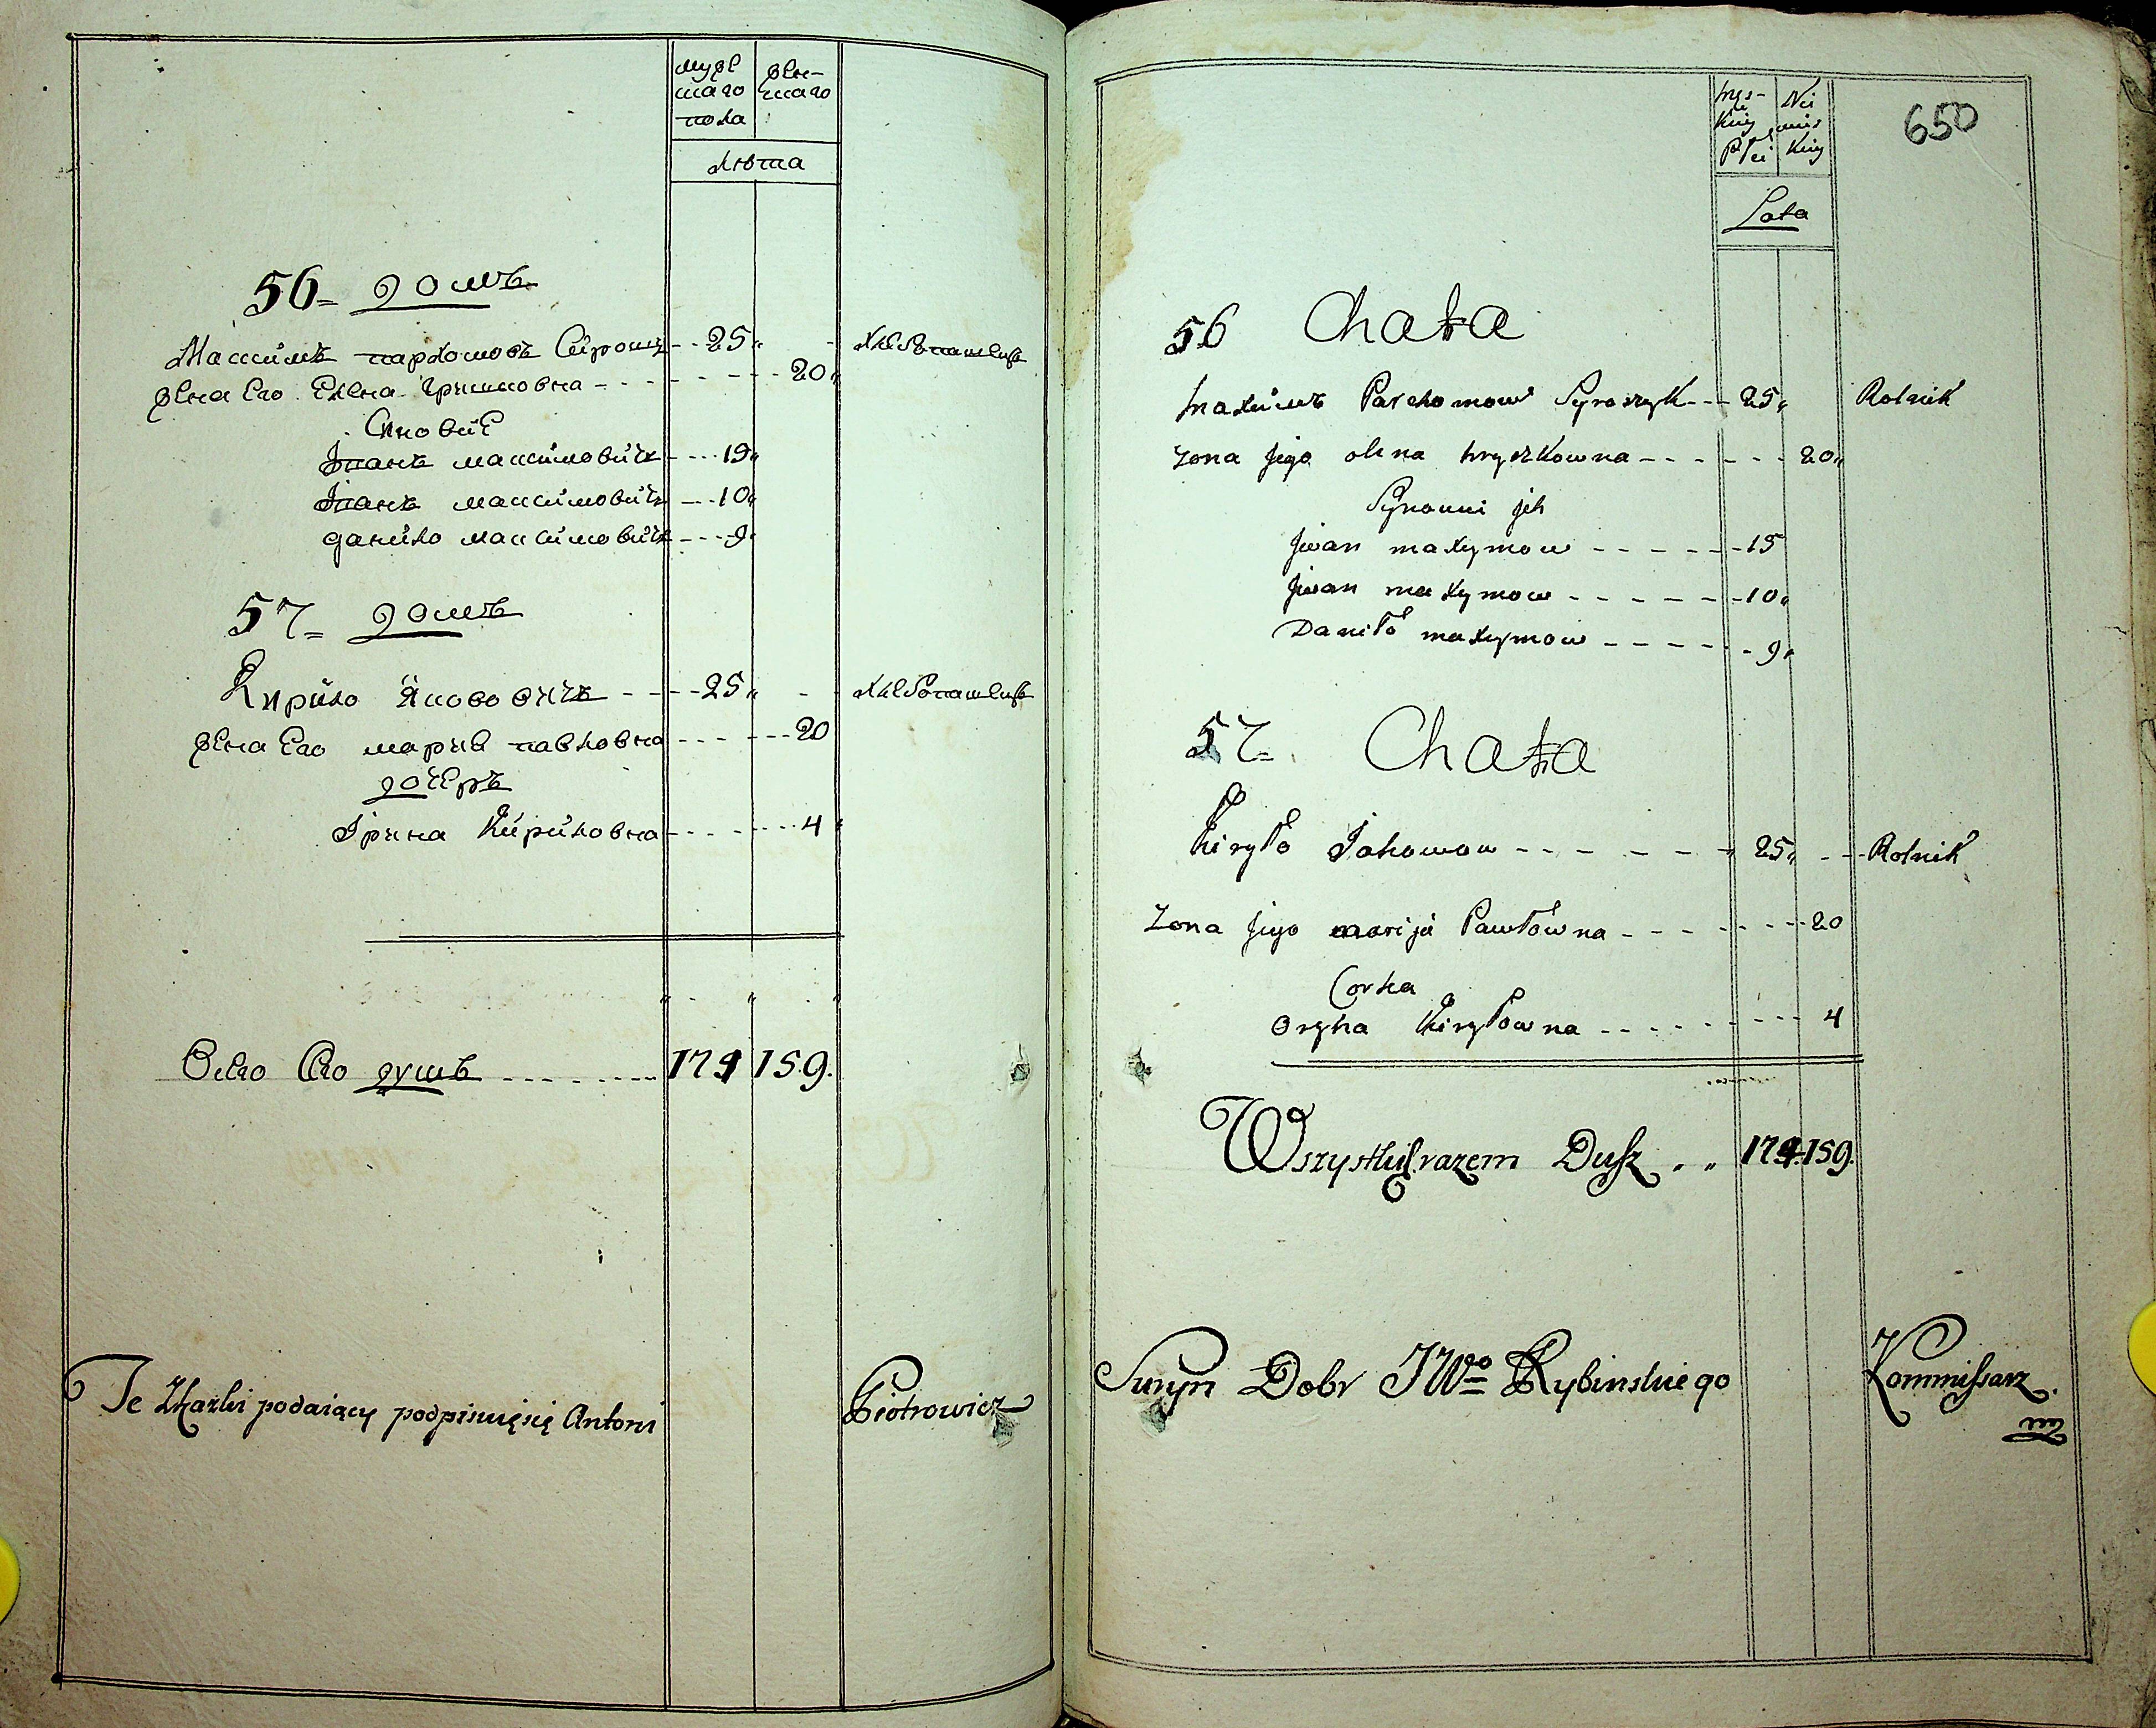 мужe женскаго
скаго
пола
лѣта
56= домъ
Максимъ пархомовъ Сирошъ 25 хлебопашецъ
жена Его Елена Гришковна 20
Синовиe
Іванъ максимовичъ 15
Іванъ максимовичъ 10
данило максимовичъ 9
57= домъ
Кирило Якововичъ 25 хлебопашецъ
жена Его мария павловна 20
дочеръ
Ірина Кириловна 4
Всего душъ 174 159.
Te Skazki podaiący podpisuię się Antoni Piotrowicz
650
męs- Nie
kiey wies
Płci kiey
Lata
56 Chata
maximъ Parchomow Syroszyk 25 Rolnik
Zona Jego olena hryszkowna 20
Synowie jch
Jwan maxymow 15
Jwan maxymow 10
Daniło maxymow 9
57= Chata
Kiryło Jakowow 25 Rolnik
Zona Jego marija Pawłowna 20
Corka
Oryna Kiryłowna 4
Wszystkich razem Dusz 174 159.
Suryn Dobr JWo Rybinskiego Kommissarz.